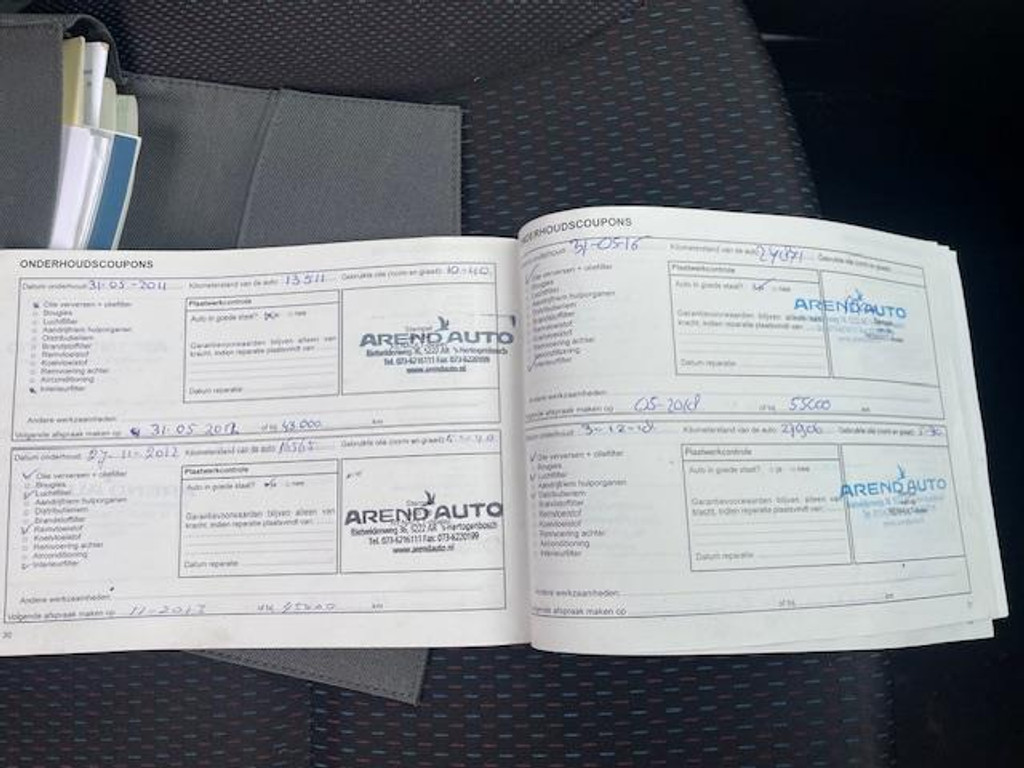 ONDERHOUDSCOUPONS
Datum onderhoud: 31-05-2011 Kilometerstand van de auto: 13511 Gebruikte olie (norm en graad): 10-40
Olie verversen + oliefilter
Bougies
Luchtfilter
Aandrijfriem hulporganen
Distributieriem
Brandstoffilter
Remvloeistof
Koelvloeistof
Remvoering achter
Airconditioning
Interieurfilter
Plaatwerkcontrole
Auto in goede staat? nee
Garantievoorwaarden blijven alleen van
kracht, indien reparatie plaatsvindt van:
Datum reparatie:
Stempel
AREND AUTO
Rietveldenweg 36, 5222 AR 's-Hertogenbosch
Tel. 073-6216111 Fax: 073-6220199
www.arendauto.nl
Andere werkzaamheden:
Volgende afspraak maken op 31 05 2012 of bij 43.000 km
Datum onderhoud: 27-11-2012 Kilometerstand van de auto: 16565 Gebruikte olie (norm en graad):
Olie verversen + oliefilter
Bougies
Luchtfilter
Aandrijfriem hulporganen
Distributieriem
Brandstoffilter
Remvloeistof
Koelvloeistof
Remvoering achter
Airconditioning
Interieurfilter
Plaatwerkcontrole
Auto in goede staat? nee
Garantievoorwaarden blijven alleen van
kracht, indien reparatie plaatsvindt van:
Datum reparatie:
Stempel
AREND AUTO
Rietveldenweg 36, 5222 AR 's-Hertogenbosch
Tel. 073-6216111 Fax: 073-6220199
www.arendauto.nl
Andere werkzaamheden:
Volgende afspraak maken op 11-2013 km
30
ONDERHOUDSCOUPONS
onderhoud: 31-05-16 Kilometerstand van de auto: Gebruikte olie (norm en graad):
Olie verversen + oliefilter
Bougies
Luchtfilter
Aandrijfriem hulporganen
Distributieriem
Brandstoffilter
Remvloeistof
Koelvloeistof
Remvoering achter
Airconditioning
Interieurfilter
Plaatwerkcontrole
Auto in goede staat? nee
Garantievoorwaarden blijven alleen van
kracht, indien reparatie plaatsvindt van:
Datum reparatie:
AREND AUTO
Andere werkzaamheden:
Volgende afspraak maken op 05-2018 of bij 55000 km
Datum onderhoud: 3-12-18 Kilometerstand van de auto: 27906 Gebruikte olie (norm en graad): 5-30
Olie verversen + oliefilter
Bougies
Luchtfilter
Aandrijfriem hulporganen
Distributieriem
Brandstoffilter
Remvloeistof
Koelvloeistof
Remvoering achter
Airconditioning
Interieurfilter
Plaatwerkcontrole
Auto in goede staat? ja nee
Garantievoorwaarden blijven alleen van
kracht, indien reparatie plaatsvindt van:
Datum reparatie:
AREND AUTO
Andere werkzaamheden:
Volgende afspraak maken op of bij km